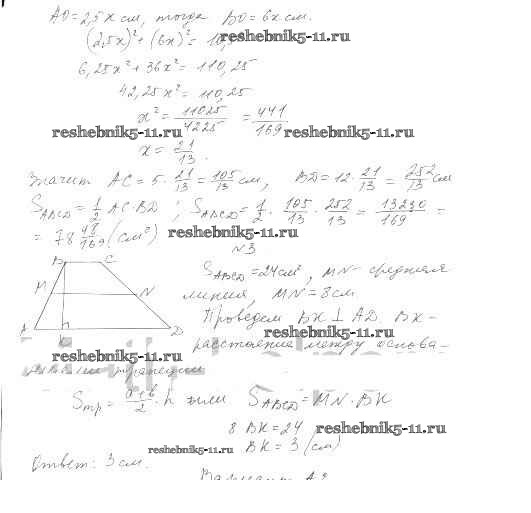 AO = 2,5x см, тогда BO = 6x см.
(2,5x)² + (6x)² = 10,5
reshebnik5-11.ru
6,25x² + 36x² = 110,25
42,25x² = 110,25
x² = 11025/4225 = 441/169
reshebnik5-11.ru reshebnik5-11.ru
x = 21/13.
Значит AC = 5 · 21/13 = 105/13 см, BD = 12 · 21/13 = 252/13 см
S_ABCD = 1/2 AC·BD ; S_ABCD = 1/2 · 105/13 · 252/13 = 13230/169 =
= 78 48/169 (см²) reshebnik5-11.ru
№3
B C
S_ABCD = 24 см², MN – средняя
M N
линия, MN = 8 см
Проведем BK ⊥ AD. BK –
A D
reshebnik5-11.ru
K
расстояние между основа-
reshebnik5-11.ru
ниями трапеции
S_тр = a+b/2 · h или S_ABCD = MN · BK
8 BK = 24 reshebnik5-11.ru
reshebnik5-11.ru BK = 3 (см)
Ответ: 3 см.